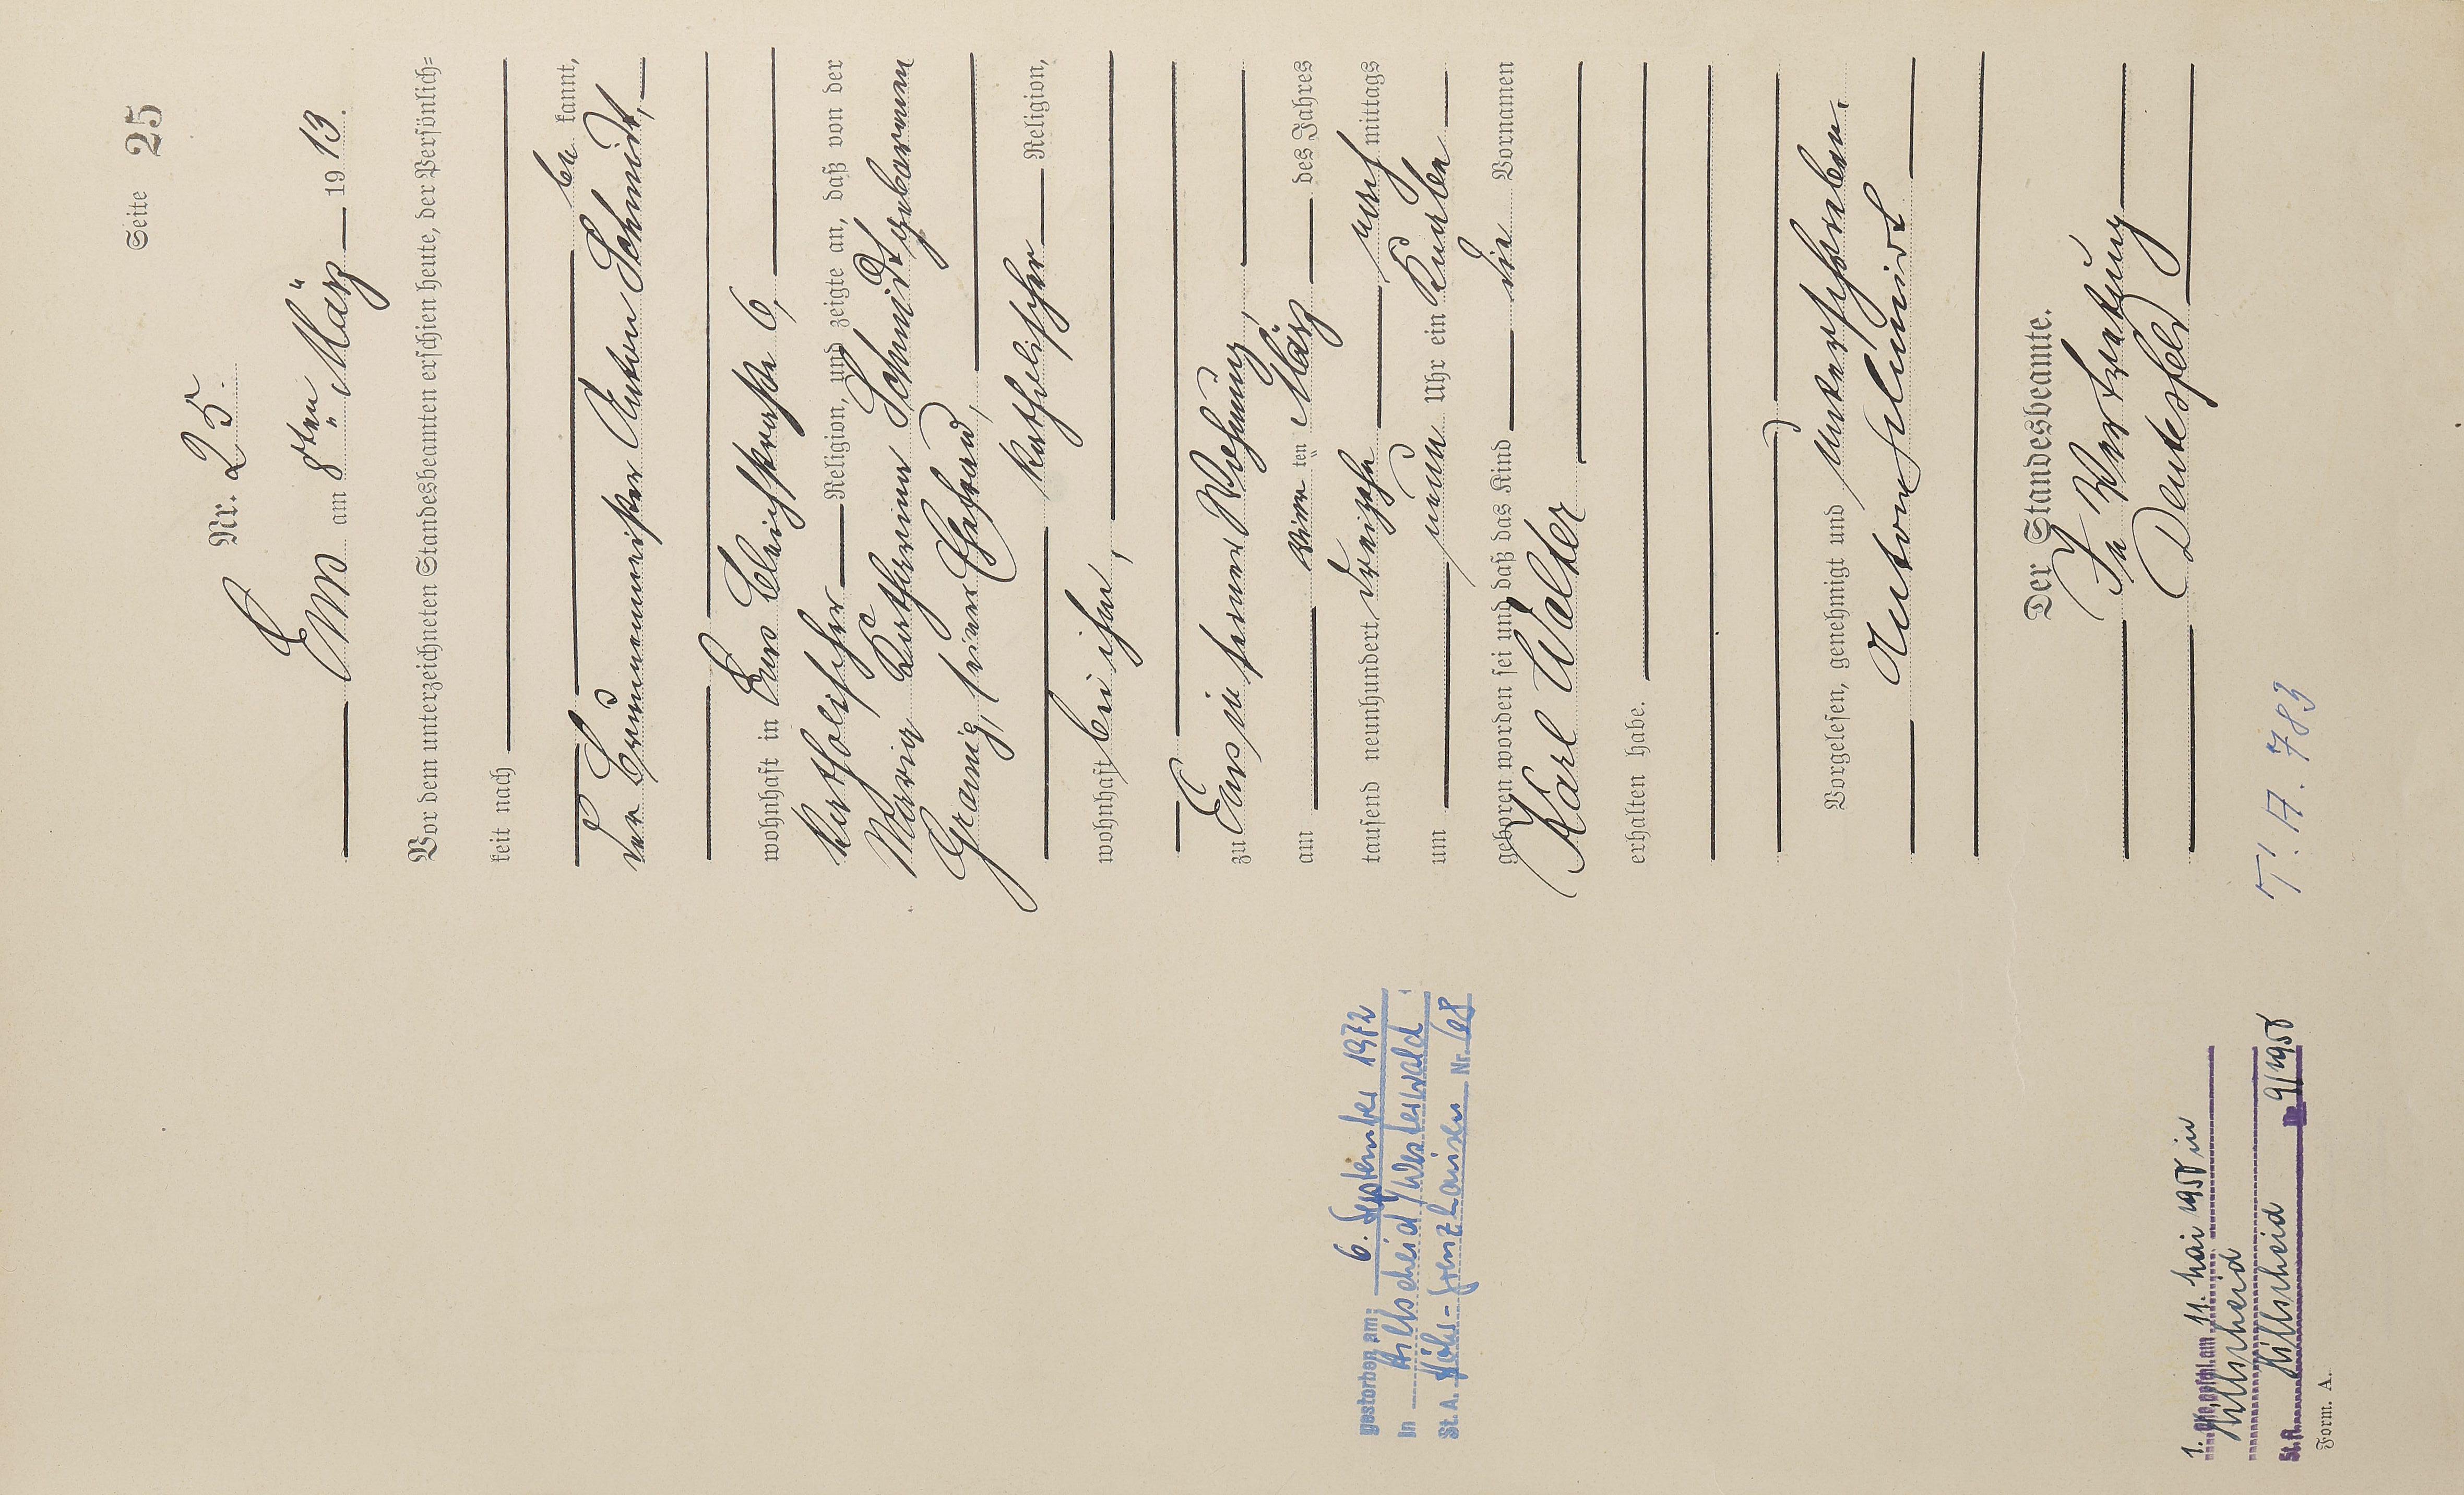 Seite 25
Nr. 25.
Ems am 8ten März 1913.
Vor dem unterzeichneten Standesbeamten erschien heute, der Persönlich=
keit nach
be kannt,
der Brunnenmeister Anton Schmidt,
wohnhaft in Ems Bleichstraße 6,
katholischer Religion, und zeigte an, daß von der
Maria Katharina Schmidt geborenen
seiner Ehefrau,
katholischer Religion,
wohnhaft bei ihm,
zu Ems in seiner Wohnung,
am vier ten März des Jahres
tausend neunhundert dreizehn nach mittags
um neun Uhr ein Knabe
geboren worden sei und daß das Kind die Vornamen
Karl Walter
erhalten habe.
Vorgelesen, genehmigt und unterschrieben.
Anton Schmidt
Der Standesbeamte.
In Vertretung
T. A. 783
gestorben am: 6. September 1972
in Hillscheid/Westerwald
St. A. Höhr-Grenzhausen Nr. 168
1. Ehe geschl. am 11. Mai 1950 in
Hillscheid
St. A. Hillscheid Nr. 9/1950
Form. A.